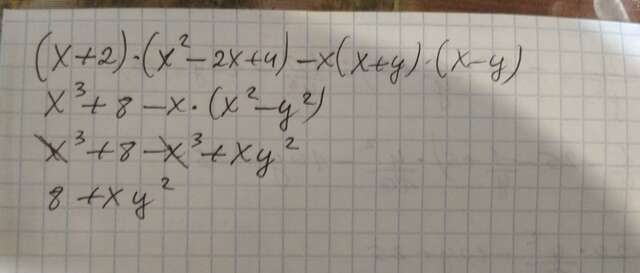 (x+2)·(x²-2x+4)-x(x+y)·(x-y)
x³+8-x·(x²-y²)
x³+8-x³+xy²
8+xy²